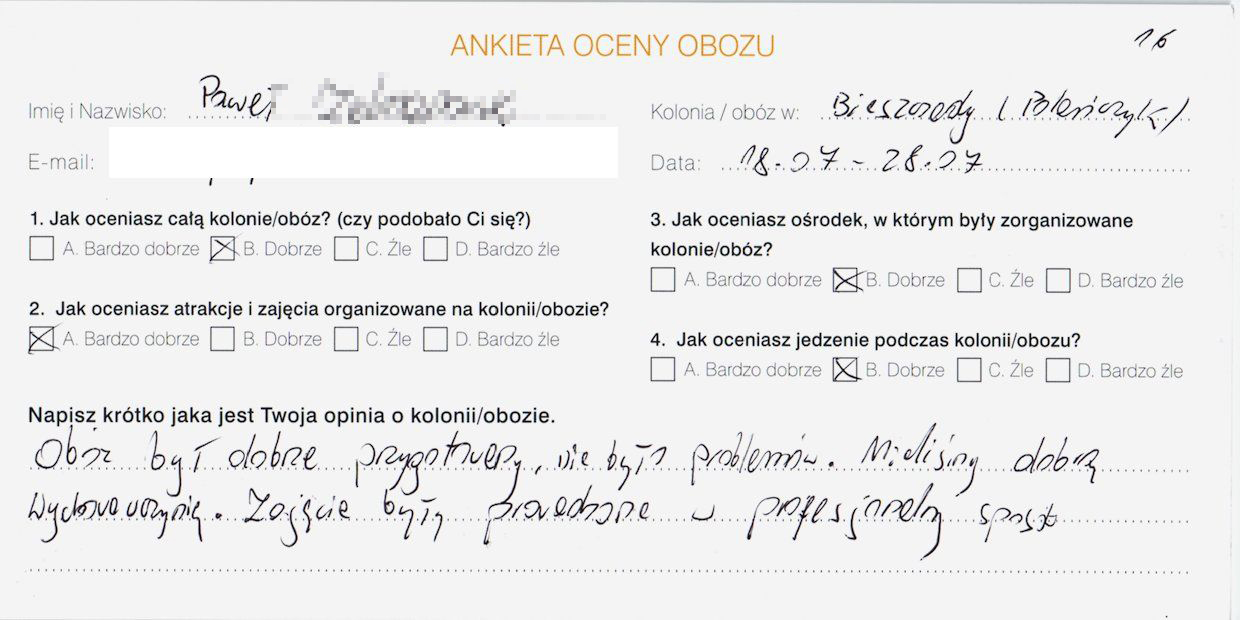 ANKIETA OCENY OBOZU
16
Imię i Nazwisko: Paweł
Kolonia / obóz w: Bieszczady (Polańczyk)
E-mail:
Data: 18.07 - 28.07
1. Jak oceniasz całą kolonie/obóz? (czy podobało Ci się?)
A. Bardzo dobrze B. Dobrze C. Źle D. Bardzo źle
2. Jak oceniasz atrakcje i zajęcia organizowane na kolonii/obozie?
A. Bardzo dobrze B. Dobrze C. Źle D. Bardzo źle
3. Jak oceniasz ośrodek, w którym były zorganizowane
kolonie/obóz?
A. Bardzo dobrze B. Dobrze C. Źle D. Bardzo źle
4. Jak oceniasz jedzenie podczas kolonii/obozu?
A. Bardzo dobrze B. Dobrze C. Źle D. Bardzo źle
Napisz krótko jaka jest Twoja opinia o kolonii/obozie.
Obóz był dobrze przygotowany, nie było problemów. Mieliśmy dobrą
Wychowawczynię. Zajęcie były prowadzone w profesjonalny sposób